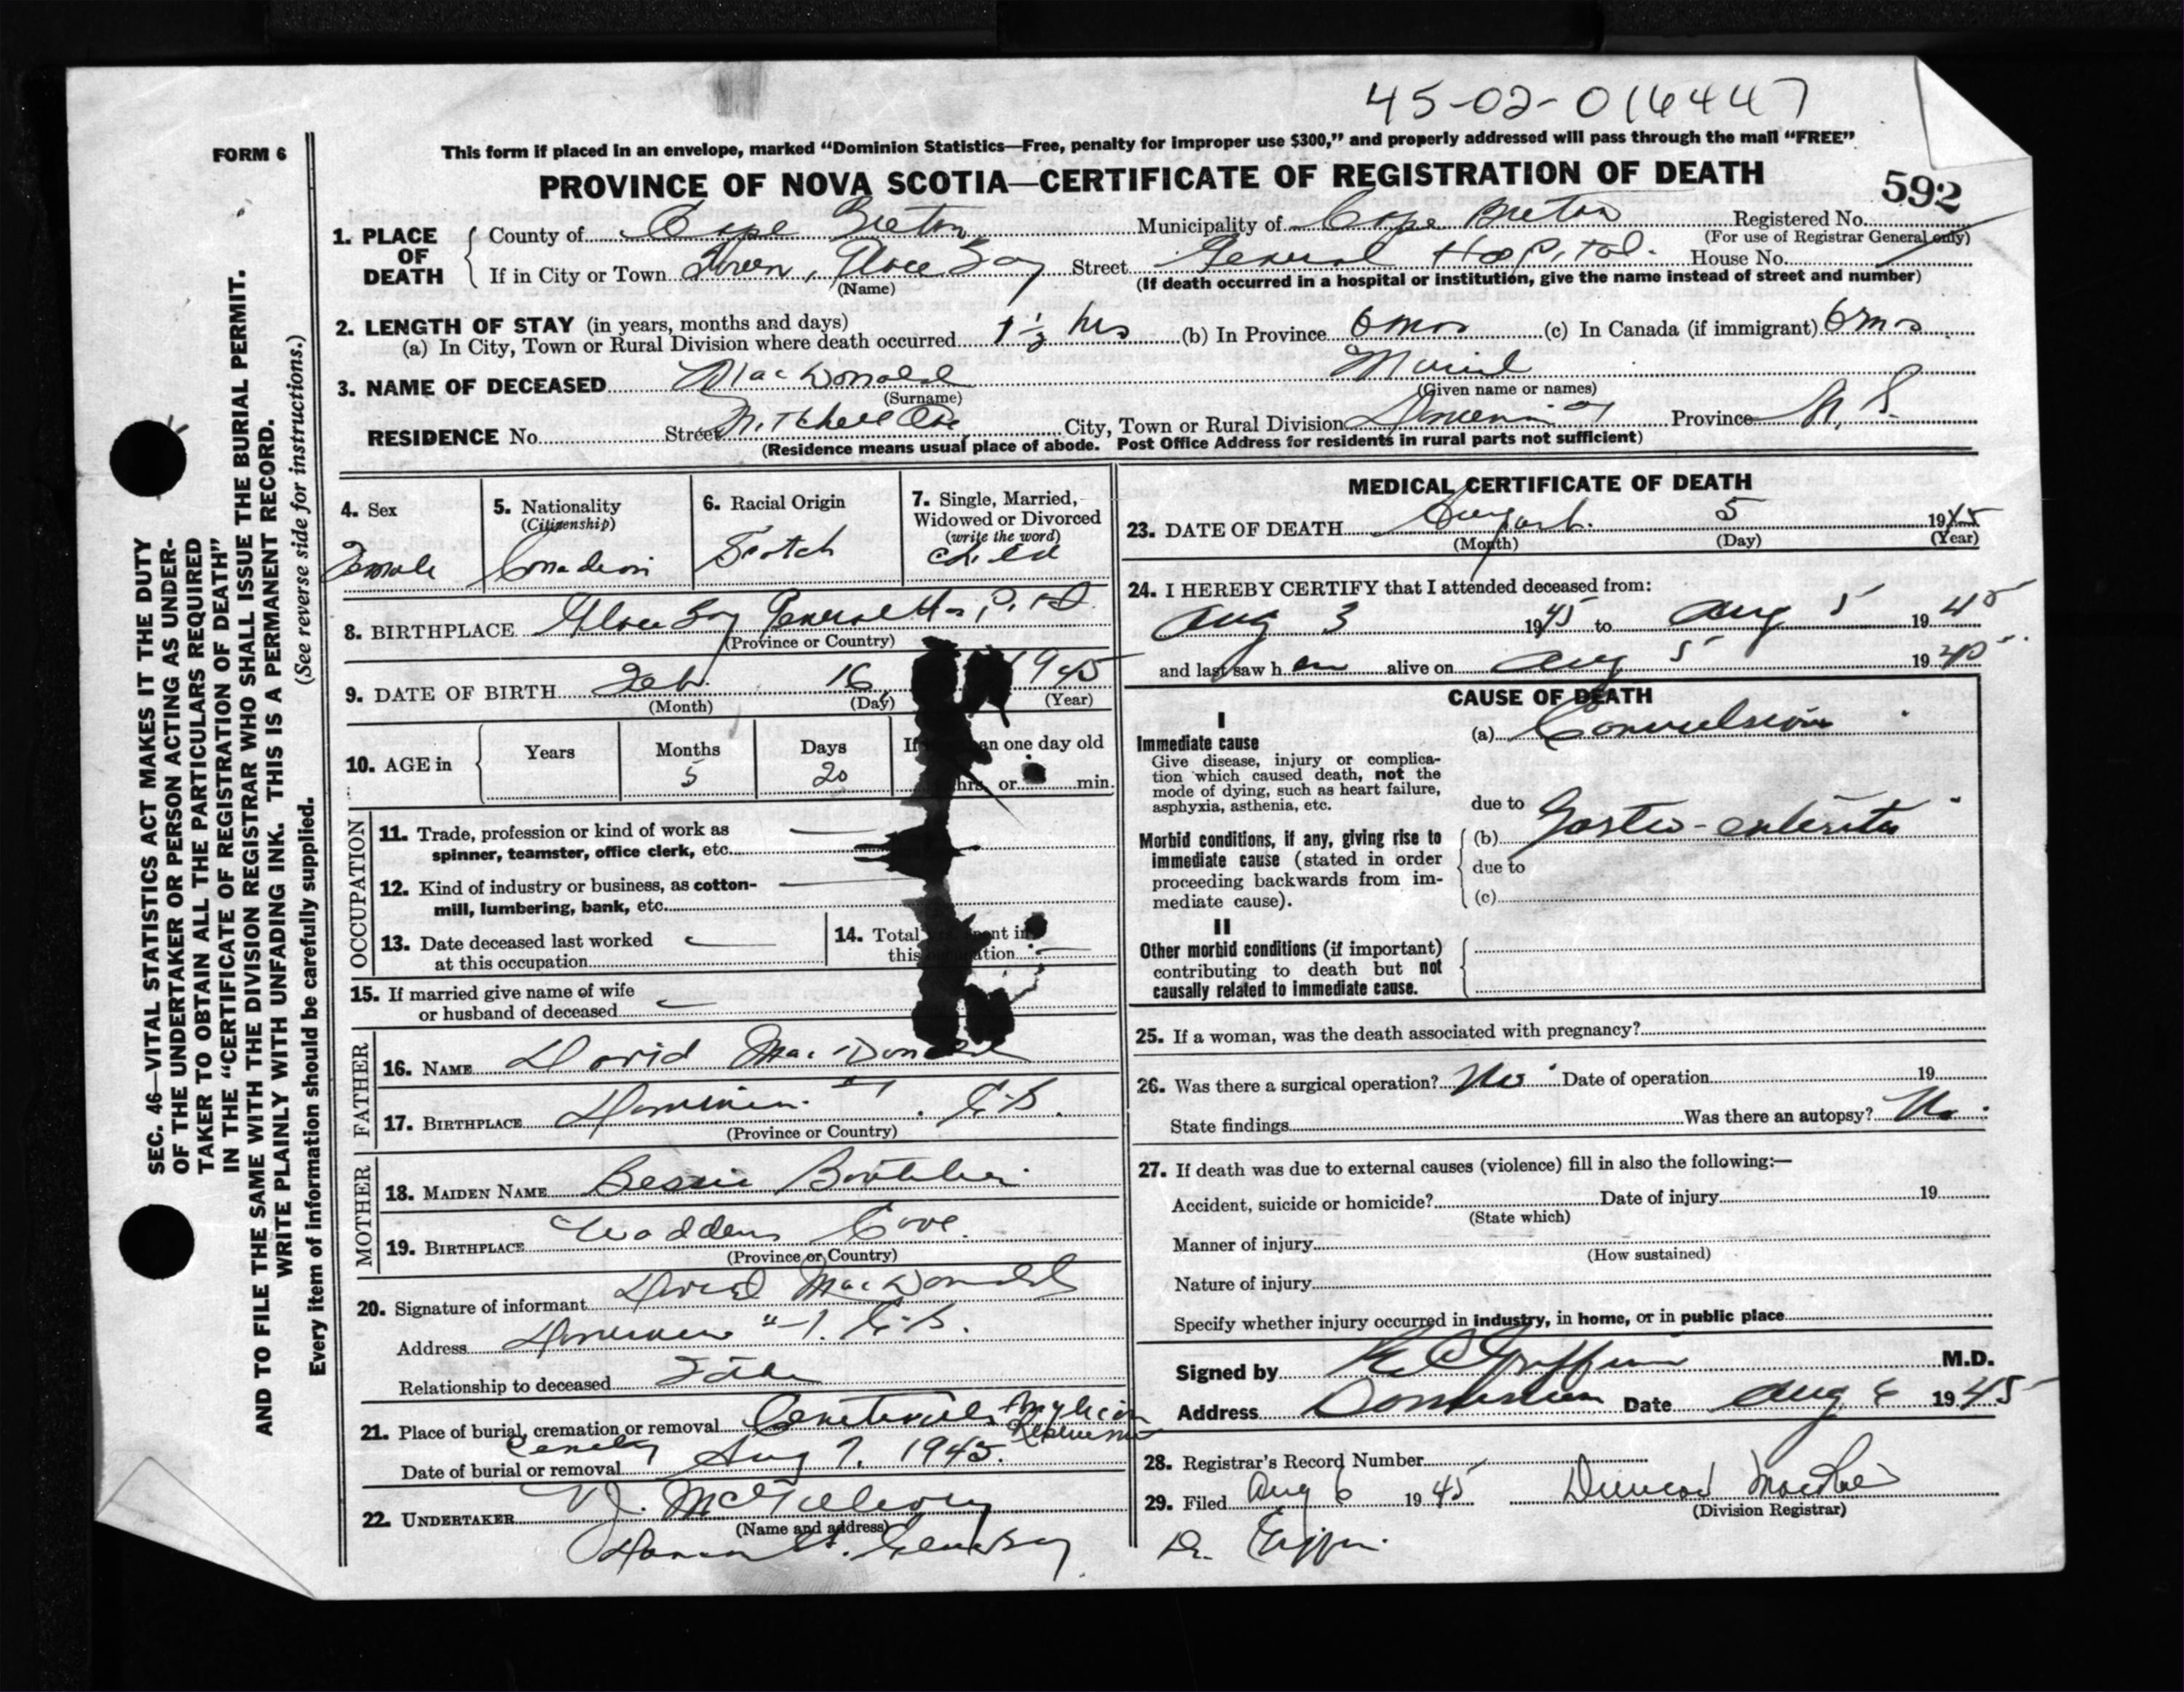 45-02-016447
FORM 6
This form if placed in an envelope, marked "Dominion Statistics—Free, penalty for improper use $300," and properly addressed will pass through the mail "FREE"
PROVINCE OF NOVA SCOTIA—CERTIFICATE OF REGISTRATION OF DEATH
592
1. PLACE OF DEATH
County of Cape Breton Municipality of Cape Breton Registered No.
(For use of Registrar General only)
If in City or Town Town, Glace Bay Street General Hospital. House No.
(Name) (If death occurred in a hospital or institution, give the name instead of street and number)
2. LENGTH OF STAY (in years, months and days)
(a) In City, Town or Rural Division where death occurred 1 1/2 hrs (b) In Province 6 mos (c) In Canada (if immigrant) 6 mos
3. NAME OF DECEASED MacDonald Muriel
(Surname) (Given name or names)
RESIDENCE No. Street Mitchell Ave City, Town or Rural Division Province N. S.
(Residence means usual place of abode. Post Office Address for residents in rural parts not sufficient)
4. Sex
Female
5. Nationality
(Citizenship)
Canadian
6. Racial Origin
Scotch
7. Single, Married, Widowed or Divorced
(write the word)
Child
8. BIRTHPLACE Glace Bay General Hospital
(Province or Country)
9. DATE OF BIRTH Feb. 16, 1945
(Month) (Day) (Year)
10. AGE in Years Months Days
5 20
If an one day old
hrs. or min.
OCCUPATION
11. Trade, profession or kind of work as
spinner, teamster, office clerk, etc.
12. Kind of industry or business, as cotton-
mill, lumbering, bank, etc.
13. Date deceased last worked
at this occupation
14. Total spent in
this occupation
15. If married give name of wife
or husband of deceased
FATHER
16. NAME David MacDonald
17. BIRTHPLACE Dominion #1. C.B.
(Province or Country)
MOTHER
18. MAIDEN NAME Bessie Boutilier
19. BIRTHPLACE Waddens Cove.
(Province or Country)
20. Signature of informant David MacDonald
Address Dominion #1. C.B.
Relationship to deceased Father
21. Place of burial, cremation or removal Anglican
Cemetery
Date of burial or removal Aug 7, 1945.
22. UNDERTAKER V.J. McGillivray
(Name and address)
Glace Bay
MEDICAL CERTIFICATE OF DEATH
23. DATE OF DEATH August 5 1945
(Month) (Day) (Year)
24. I HEREBY CERTIFY that I attended deceased from:
Aug 3 1945 to Aug 5 1945
and last saw her alive on Aug 5 1945
CAUSE OF DEATH
I
Immediate cause
Give disease, injury or complica-
tion which caused death, not the
mode of dying, such as heart failure,
asphyxia, asthenia, etc.
(a) Convulsion
due to
Morbid conditions, if any, giving rise to
immediate cause (stated in order
proceeding backwards from im-
mediate cause).
(b) Gastro-enteritis
due to
(c)
II
Other morbid conditions (if important)
contributing to death but not
causally related to immediate cause.
25. If a woman, was the death associated with pregnancy?
26. Was there a surgical operation? No Date of operation 19
State findings Was there an autopsy? No
27. If death was due to external causes (violence) fill in also the following:—
Accident, suicide or homicide? Date of injury 19
(State which)
Manner of injury
(How sustained)
Nature of injury
Specify whether injury occurred in industry, in home, or in public place
Signed by Griffin M.D.
Address Dominion Date Aug 6 1945
28. Registrar's Record Number
29. Filed Aug 6 1945 Duncan MacRae
(Division Registrar)
Dr. Griffin.
SEC. 46—VITAL STATISTICS ACT MAKES IT THE DUTY
OF THE UNDERTAKER OR PERSON ACTING AS UNDER-
TAKER TO OBTAIN ALL THE PARTICULARS REQUIRED
IN THE "CERTIFICATE OF REGISTRATION OF DEATH"
AND TO FILE THE SAME WITH THE DIVISION REGISTRAR WHO SHALL ISSUE THE BURIAL PERMIT.
WRITE PLAINLY WITH UNFADING INK. THIS IS A PERMANENT RECORD.
Every item of information should be carefully supplied. (See reverse side for instructions.)